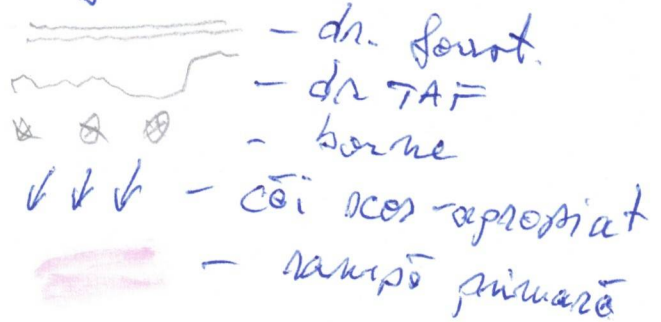 - dr. forest.
- dr TAF
- borne
- căi scos-apropiat
- rampă primară